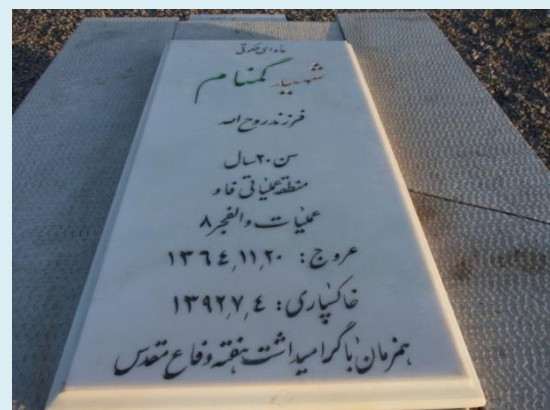 ماوای ملکوتی
شهید گمنام
فرزند روح الله
سن ۲۰ سال
منطقه عملیاتی فاو
عملیات والفجر ۸
عروج : ۱۳۶۴,۱۱,۲۰
خاکسپاری : ۱۳۹۲,۷,۴
همزمان با گرامیداشت هفته دفاع مقدس